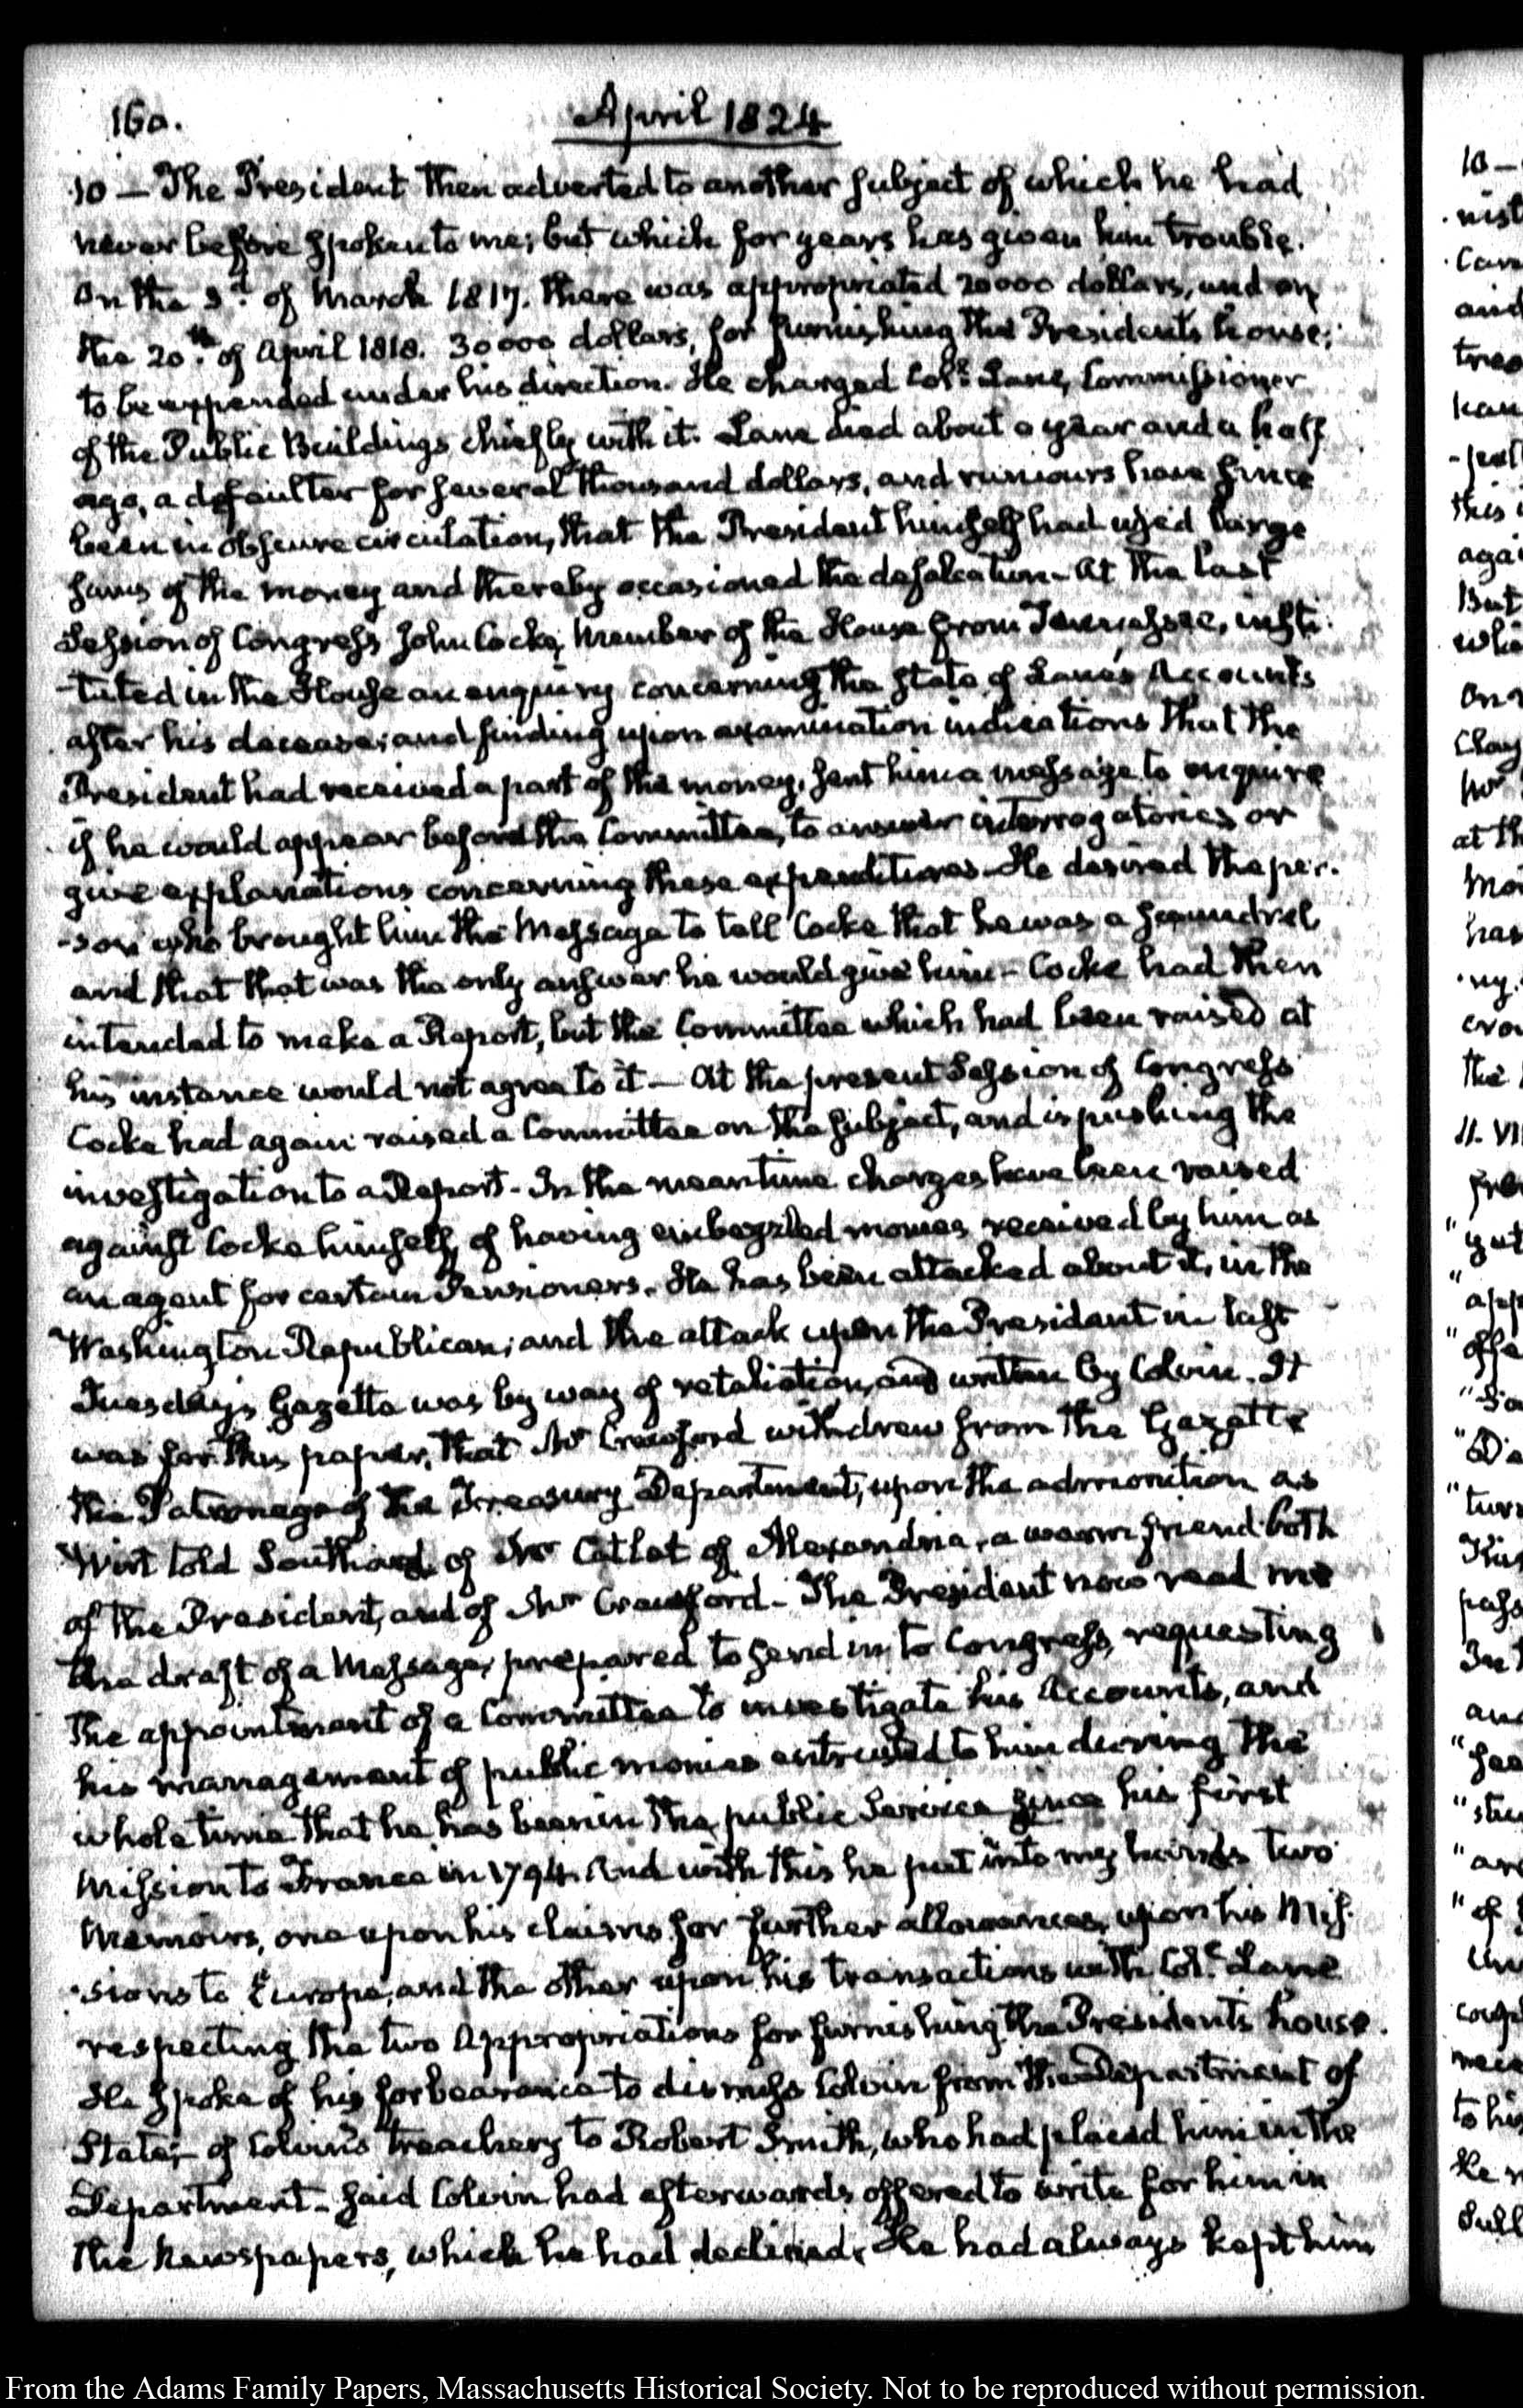 160.
April 1824
10 — The President then adverted to another subject of which he had
never before spoken to me; but which for years has given him trouble.
On the 3.d of March 1817. there was appropriated 20000 dollars, and on
the 20.th of April 1818. 30000 dollars, for furnishing the Presidents house;
to be expended under his direction. He charged Col.l Lane, Commissioner
of the Public Buildings chiefly with it. Lane died about a year and a half
ago, a defaulter for several thousand dollars, and rumours have since
been in obscure circulation, that the President himself had used large
sums of the money and thereby occasioned the defalcation — At the last
Session of Congress John Cocke, Member of the House from Tennessee, insti-
-tuted in the House an enquiry concerning the state of Lane's Accounts
after his decease; and finding upon examination indications that the
President had received a part of the money, sent him a message to enquire
if he would appear before the Committee, to answer interrogatories or
give explanations concerning these expenditures — He desired the per-
-son who brought him the Message to tell Cocke that he was a scoundrel
and that that was the only answer he would give him — Cocke had then
intended to make a Report, but the Committee which had been raised at
his instance would not agree to it — At the present Session of Congress
Cocke had again raised a Committee on the subject, and is pushing the
investigation to a Report — In the meantime charges have been raised
against Cocke himself, of having embezzled monies received by him as
an agent for certain Pensioners. He has been attacked about it, in the
Washington Republican; and the attack upon the President in last
Tuesday's Gazette was by way of retaliation, and written by Colvin. It
was for this paper, that Mr Crawford withdrew from the Gazette
the Patronage of the Treasury Department, upon the admonition as
Wirt told Southard, of Mr Catlet of Alexandria, a warm friend both
of the President, and of Mr Crawford — The President now read me
the draft of a Message, prepared to send in to Congress, requesting
the appointment of a Committee to investigate his Accounts, and
his management of public monies entrusted to him during the
whole time that he has been in the public Service since his first
Mission to France in 1794. And with this he put into my hands two
Memoirs, one upon his claims for further allowances, upon his Mis-
-sions to Europe, and the other upon his transactions with Col.l Lane
respecting the two Appropriations for furnishing the Presidents house.
He spoke of his forbearance to dismiss Colvin from the Department of
State; — of Colvin's treachery to Robert Smith, who had placed him in the
Department — said Colvin had afterwards offered to write for him in
the Newspapers, which he had declined. He had always kept him
From the Adams Family Papers, Massachusetts Historical Society. Not to be reproduced without permission.